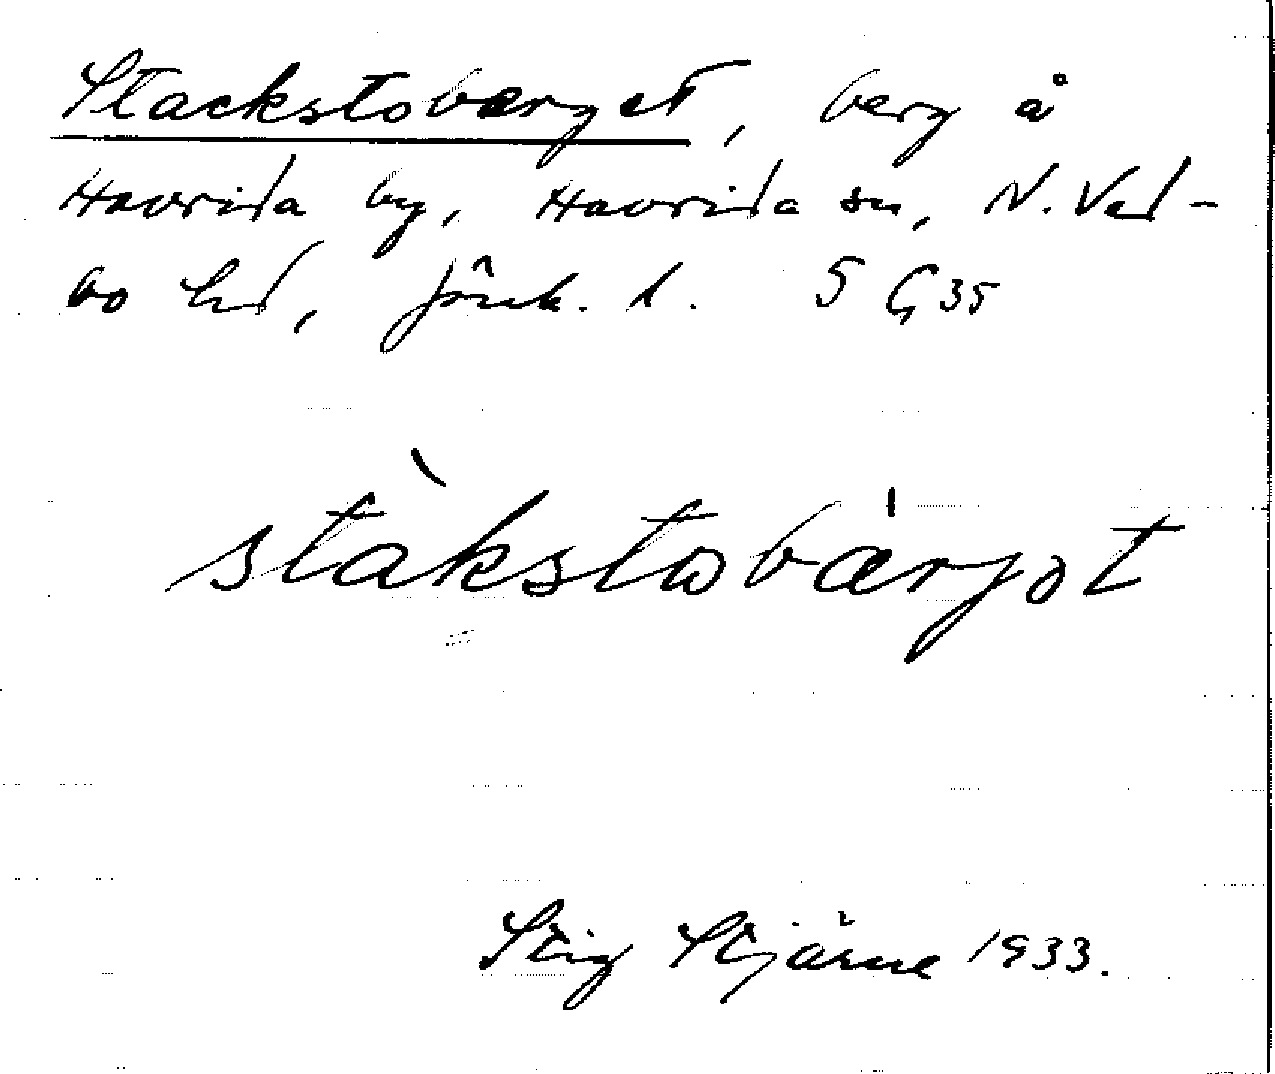 Stackstoberget, berg å
Haurida by, Haurida sn, N. Ved-
bo hd, Jönk. l. 5 G 35
stàkstobærjət
Stig Stjärne 1933.